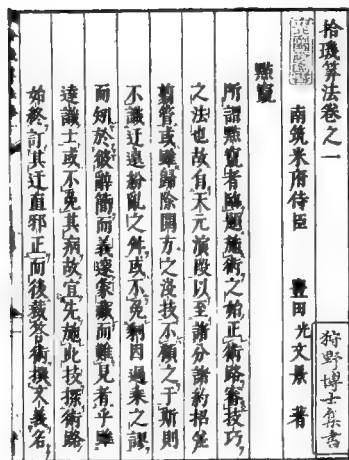 拾璣算法卷之一
南筑米府侍臣 豐田光文景 著
狩野博士集書
點竄
所謂點竄者臨題施術之始正術路省技巧
之法也故有天元演段以至諸分諸約招差
翦管或雖歸除開方之淺技不顧之于斯則
不識迂遠紛亂之舛或不免稍因過乘之誤
而矧於彼辭簡而義邃象藏而難見者乎雖
達識士或不免其病故宜先施此技探術路
始終訂其迂直邪正而後叙答術撰文義名